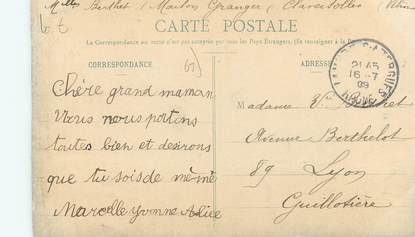 Mlles Berthet (Maison Granger) Claveisolles Rhône
CARTE POSTALE
La Correspondance au recto n'est pas acceptée par tous les Pays Étrangers. (Se renseigner à la Poste)
CORRESPONDANCE
69)
ADRESSE
Chère grand maman
Nous nous portons
toutes bien et desirons
que tu sois de même
Marcelle Yvonne Alice
21 45
16 -7
09
RHONE
Madame Ve Berthet
Avenue Berthelot
89 Lyon
Guillotière